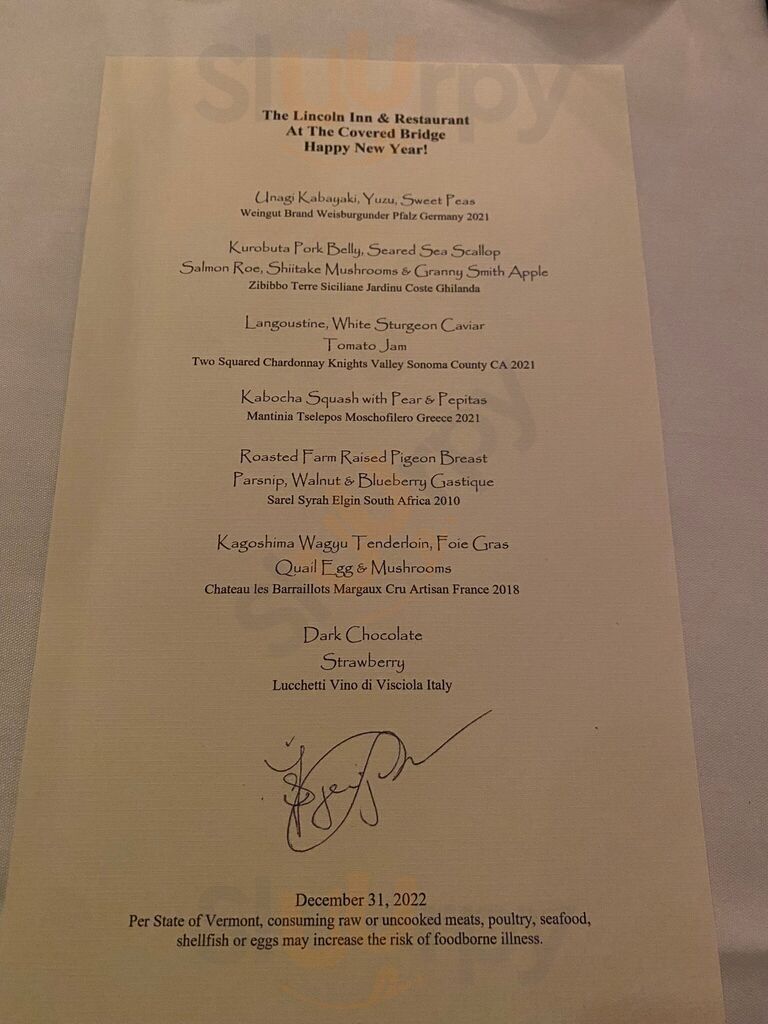 The Lincoln Inn & Restaurant
At The Covered Bridge
Happy New Year!
Unagi Kabayaki, Yuzu, Sweet Peas
Weingut Brand Weisburgunder Pfalz Germany 2021
Kurobuta Pork Belly, Seared Sea Scallop
Salmon Roe, Shiitake Mushrooms & Granny Smith Apple
Zibibbo Terre Siciliane Jardinu Coste Ghilanda
Langoustine, White Sturgeon Caviar
Tomato Jam
Two Squared Chardonnay Knights Valley Sonoma County CA 2021
Kabocha Squash with Pear & Pepitas
Mantinia Tselepos Moschofilero Greece 2021
Roasted Farm Raised Pigeon Breast
Parsnip, Walnut & Blueberry Gastique
Sarel Syrah Elgin South Africa 2010
Kagoshima Wagyu Tenderloin, Foie Gras
Quail Egg & Mushrooms
Chateau les Barraillots Margaux Cru Artisan France 2018
Dark Chocolate
Strawberry
Lucchetti Vino di Visciola Italy
December 31, 2022
Per State of Vermont, consuming raw or uncooked meats, poultry, seafood,
shellfish or eggs may increase the risk of foodborne illness.